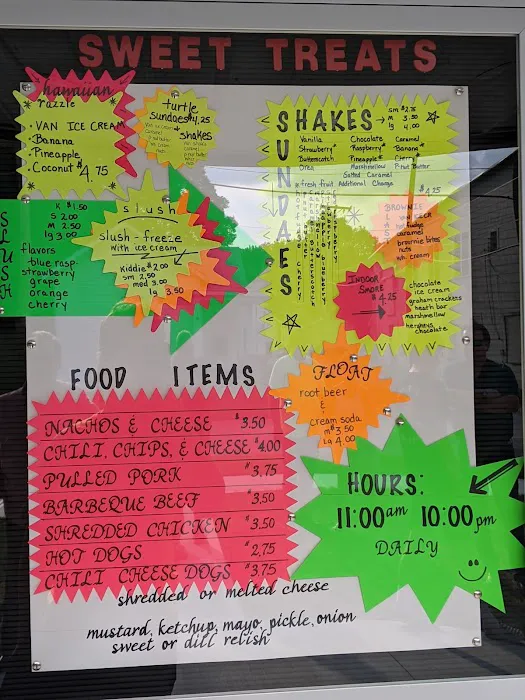 SWEET TREATS
hawaiian
razzle
• VAN ICE CREAM
• Banana
• Pineapple
• Coconut $4.75
turtle
sundaes $4.25
&
shakes
SHAKES → SM $2.75
M 3.50
lg 4.00
Vanilla Chocolate Caramel
Strawberry* Raspberry* Banana*
Butterscotch Pineapple* Cherry
Oreo Marshmallow P.Nut Butter
Salted Caramel
*fresh fruit Additional Charge
SUNDAES
$4.25
BROWNIE
fudge
caramel
brownie bites
nuts
wh. cream
INDOOR
SMORE
$4.25
chocolate
ice cream
graham crackers
heath bar
marshmellow
hersheys
chocolate
SLUSH
K $1.50
S 2.00
M 2.50
lg 3.00
flavors
blue rasp.
strawberry
grape
orange
cherry
slush
slush-freeze
with ice cream
Kiddie $2.00
sm 2.50
med 3.00
lg 3.50
FLOAT
root beer
&
cream soda
m $3.50
Lg 4.00
FOOD ITEMS
NACHOS & CHEESE $3.50
CHILI, CHIPS, & CHEESE $4.00
PULLED PORK $3.75
BARBEQUE BEEF $3.50
SHREDDED CHICKEN $3.50
HOT DOGS $2.75
CHILI CHEESE DOGS $3.75
shredded or melted cheese
mustard, ketchup, mayo, pickle, onion
sweet or dill relish
HOURS:
11:00 am 10:00 pm
DAILY